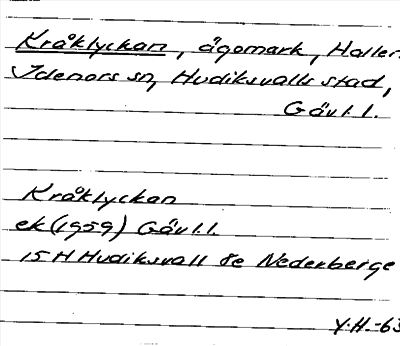 Kråklyckan, ägomark, Hallen
Idenors sn, Hudiksvalls stad,
Gävl.l.
Kråklyckan
ek (1959) Gävl.l.
15 H Hudiksvall 8e Nederberge
Y.H.-63